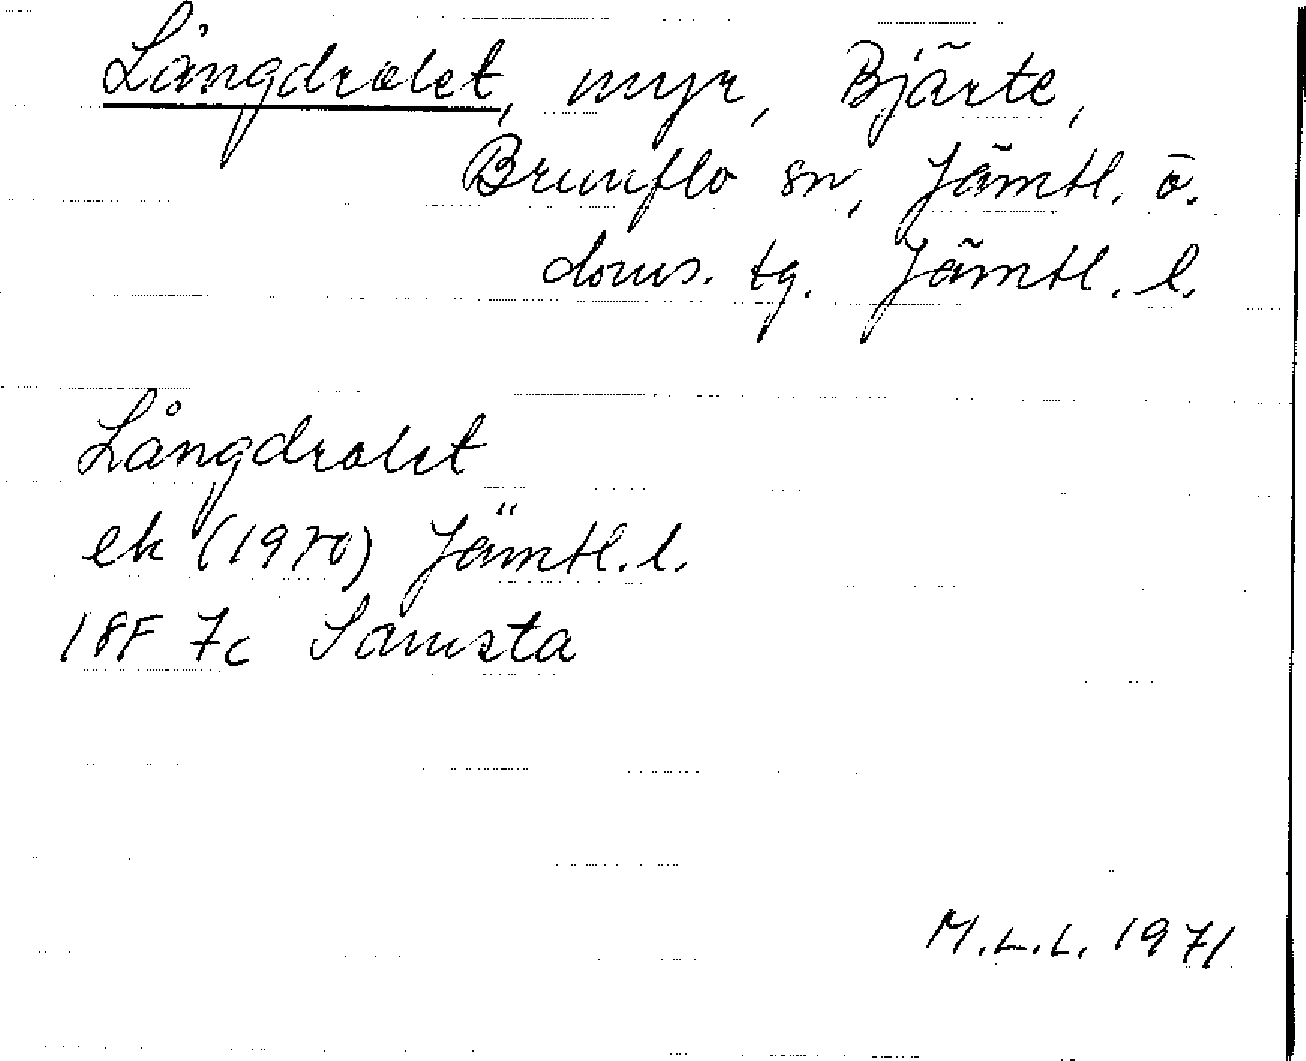 Långdralet, myr, Bjärte,
Brunflo sn, Jämtl. ö.
doms. tg. Jämtl. l.
Långdralet
ek (1970) Jämtl. l.
18F 7c Samsta
M.L.L. 1971